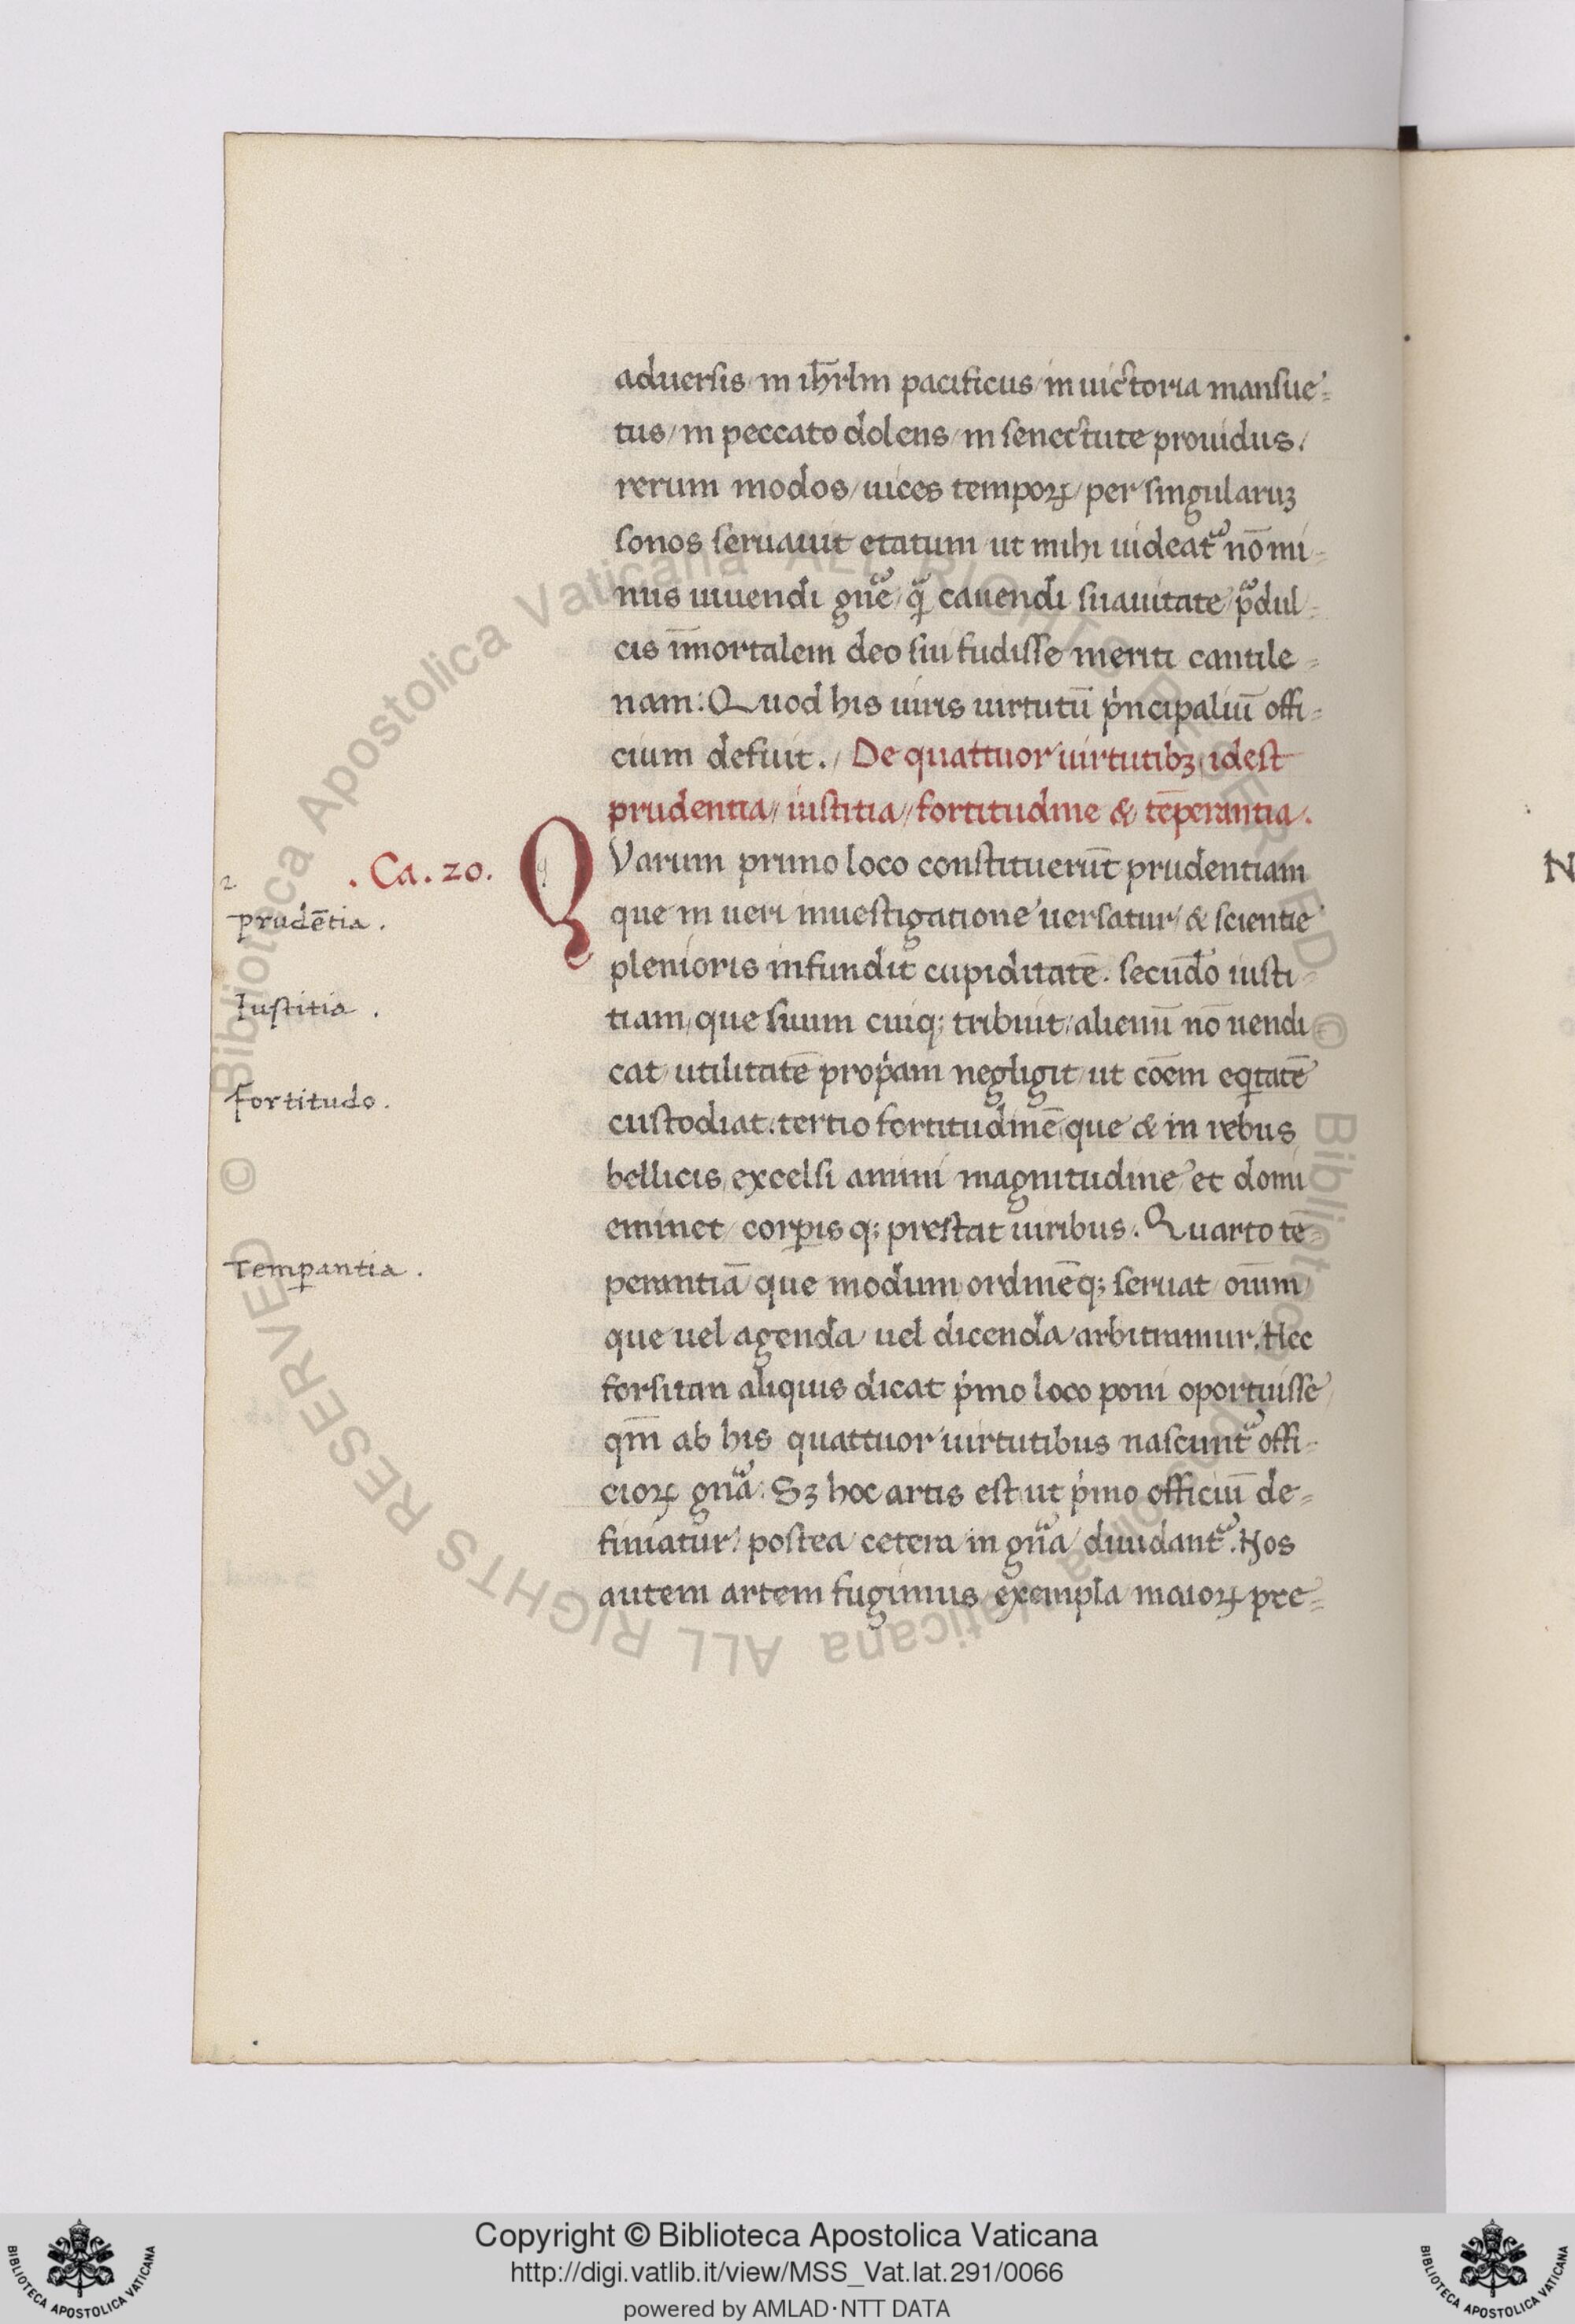 aduersis / in ih̄rlm pacificus / in uictoria mansue=
tus / in peccato dolens / in senectute prouidus /
rerum modos / uices temporꝝ / per singularuꝫ
sonos seruauit etatum ut mihi uideat᷑ nō mi=
nus uiuendi gn̄e / q̄ cauendi suauitate p̄dul=
cis īmortalem deo sui fudisse meriti cantile=
nam: Quod his uiris uirtutū p̍ncipaliū offi=
cium defuit. / De quattuor uirtutibꝫ idest
prudentia // iustitia // fortitudine & tēperantia.
. Ca. 20.
QVarum primo loco constituerūt prudentiam
que in ueri inuestigatione uersatur / & scientie
plenioris infundit cupiditatē. secūdo iusti=
tiam, que suum cuiq; tribuit / alienū nō uendi
cat / utilitatē prop̍am negligit / ut cōem eq̍tatē
custodiat. tertio fortitudinē que & in rebus
bellicis excelsi animi magnitudine et domi
eminet / corꝑis q; prestat uiribus. Quarto tē=
perantiā que modum ordinēq; seruat / oīum
que uel agenda / uel dicenda arbitramur. Hec
forsitan aliquis dicat p̍mo loco poni oportuisse
qm̄ ab his quattuor uirtutibus nascunt᷑ offi=
ciorꝝ gn̄a. Sꝫ hoc artis est ut p̍mo officiū de=
finiatur / postea / cetera / in gn̄a / diuidant᷑. Nos
autem artem fugimus / exempla maiorꝝ pre=
prudētia .
Iustitia .
fortitudo.
Temꝑantia .
Copyright © Biblioteca Apostolica Vaticana
http://digi.vatlib.it/view/MSS_Vat.lat.291/0066
powered by AMLAD·NTT DATA
BIBLIOTECA APOSTOLICA VATICANA
BIBLIOTECA APOSTOLICA VATICANA
© Biblioteca Apostolica Vaticana ALL RIGHTS RESERVED
© Biblioteca Apostolica Vaticana ALL RIGHTS RESERVED